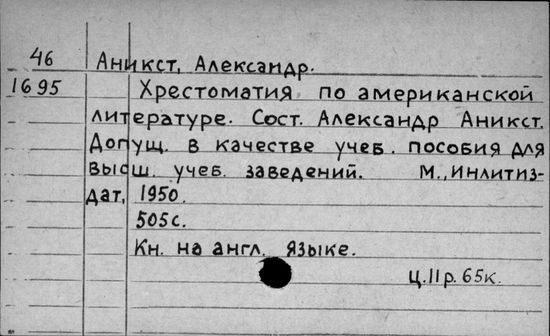 46 Аникст, Александр.
1695 Хрестоматия по американской
литературе. Сост. Александр Аникст.
Допущ. в качестве учеб. пособия для
высш. учеб. заведений. М., Инлитиз-
дат, 1950.
505с.
Кн. на англ. языке.
ц. 11р. 65к.